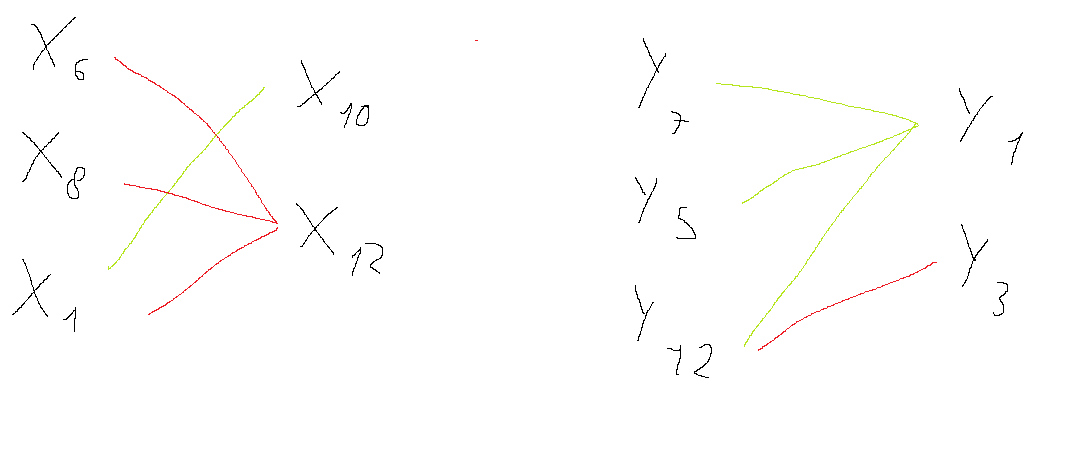 X6
X8
X1
X10
X12
Y7
Y5
Y12
Y1
Y3